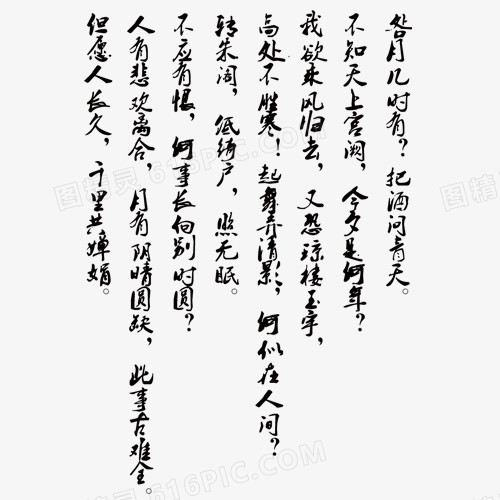 明月几时有？把酒问青天。
不知天上宫阙，今夕是何年？
我欲乘风归去，又恐琼楼玉宇，
高处不胜寒！起舞弄清影，何似在人间？
转朱阁，低绮户，照无眠。
不应有恨，何事长向别时圆？
人有悲欢离合，月有阴晴圆缺，此事古难全。
但愿人长久，千里共婵娟。
图精灵 616PIC.COM